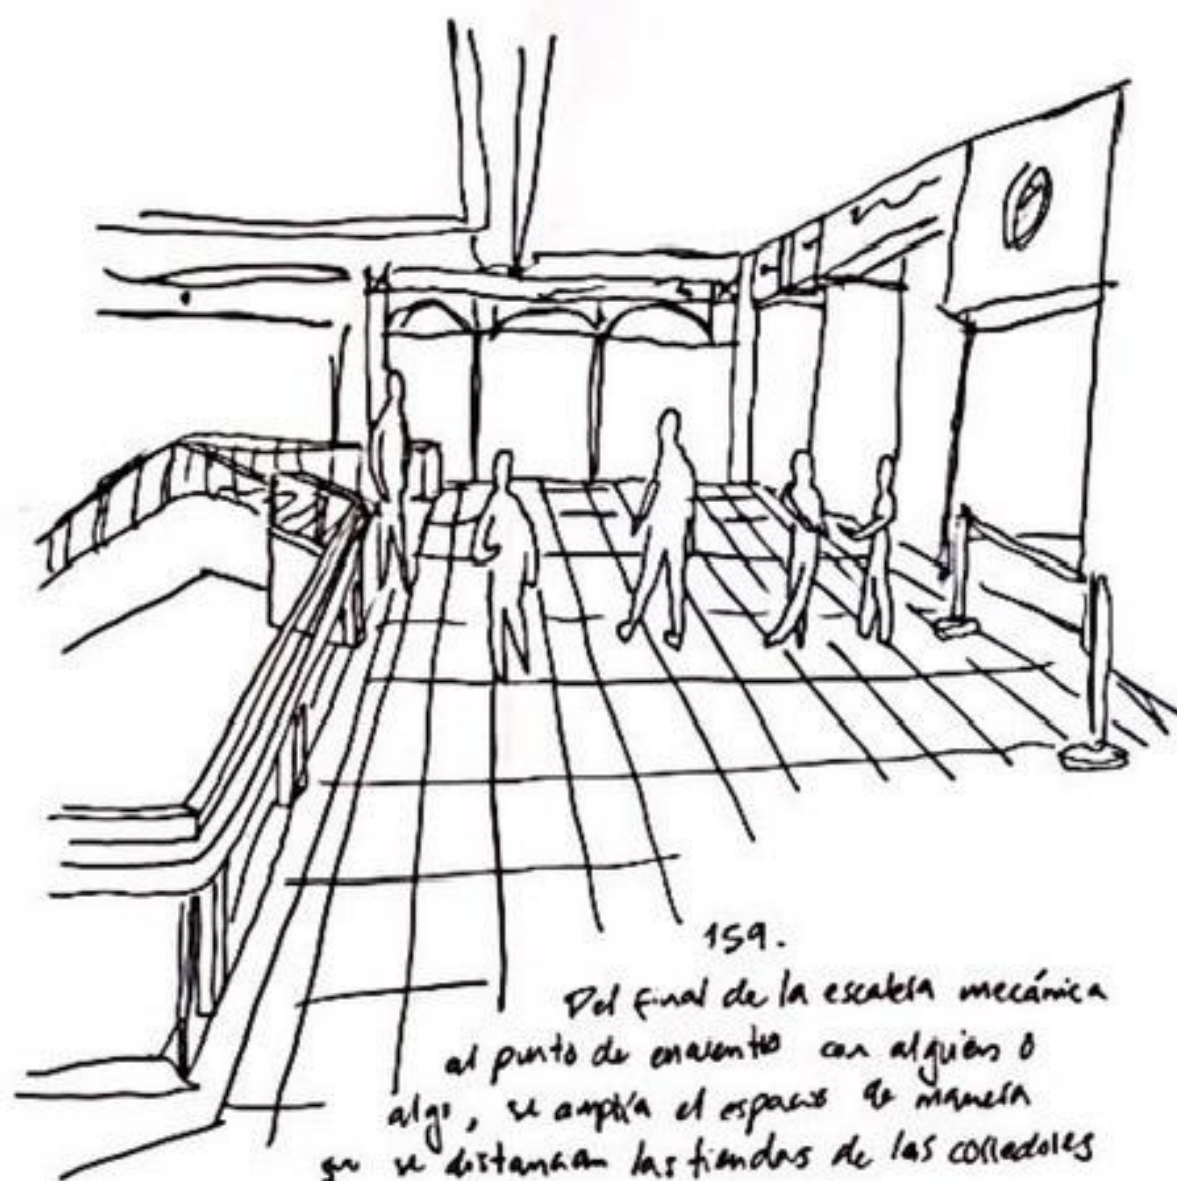 159.
Del final de la escalera mecánica
al punto de encuentro con alguien o
algo, se amplía el espacio de manera
que se distancian las tiendas de los corredores